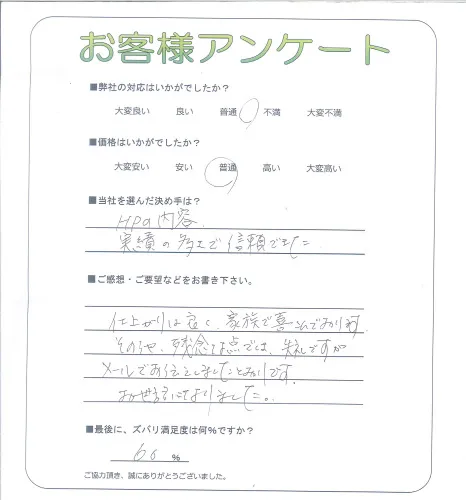 お客様アンケート
■弊社の対応はいかがでしたか？
大変良い 良い 普通 不満 大変不満
■価格はいかがでしたか？
大変安い 安い 普通 高い 大変高い
■当社を選んだ決め手は？
HPの内容
実績の多さで信頼できた
■ご感想・ご要望などをお書き下さい。
仕上がりは良く、家族で喜んでおります。
その中で、残念な点では、失礼ですが
メールでお伝えしましたとおりです。
お世話になりました。
■最後に、ズバリ満足度は何％ですか？
60 %
ご協力頂き、誠にありがとうございました。